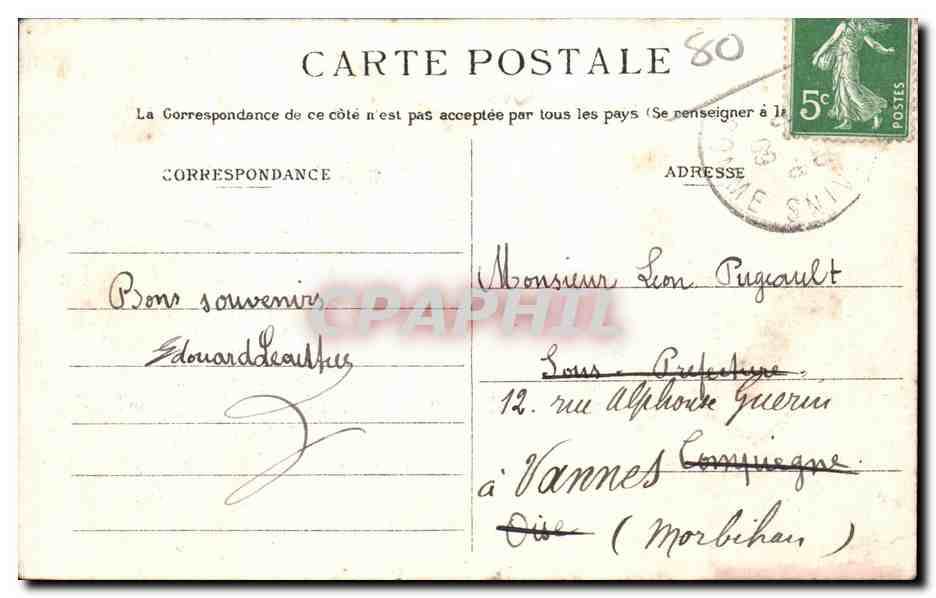 80
CARTE POSTALE
5c
POSTES
La Correspondance de ce côté n'est pas acceptée par tous les pays (Se renseigner à la
CORRESPONDANCE
ADRESSE
Bons souvenirs
Edouard
Monsieur Léon Pugeault
Sous-Préfecture.
12. rue Alphonse Guerin
à Vannes Compiegne.
Oise (Morbihan)
CPAPHIL